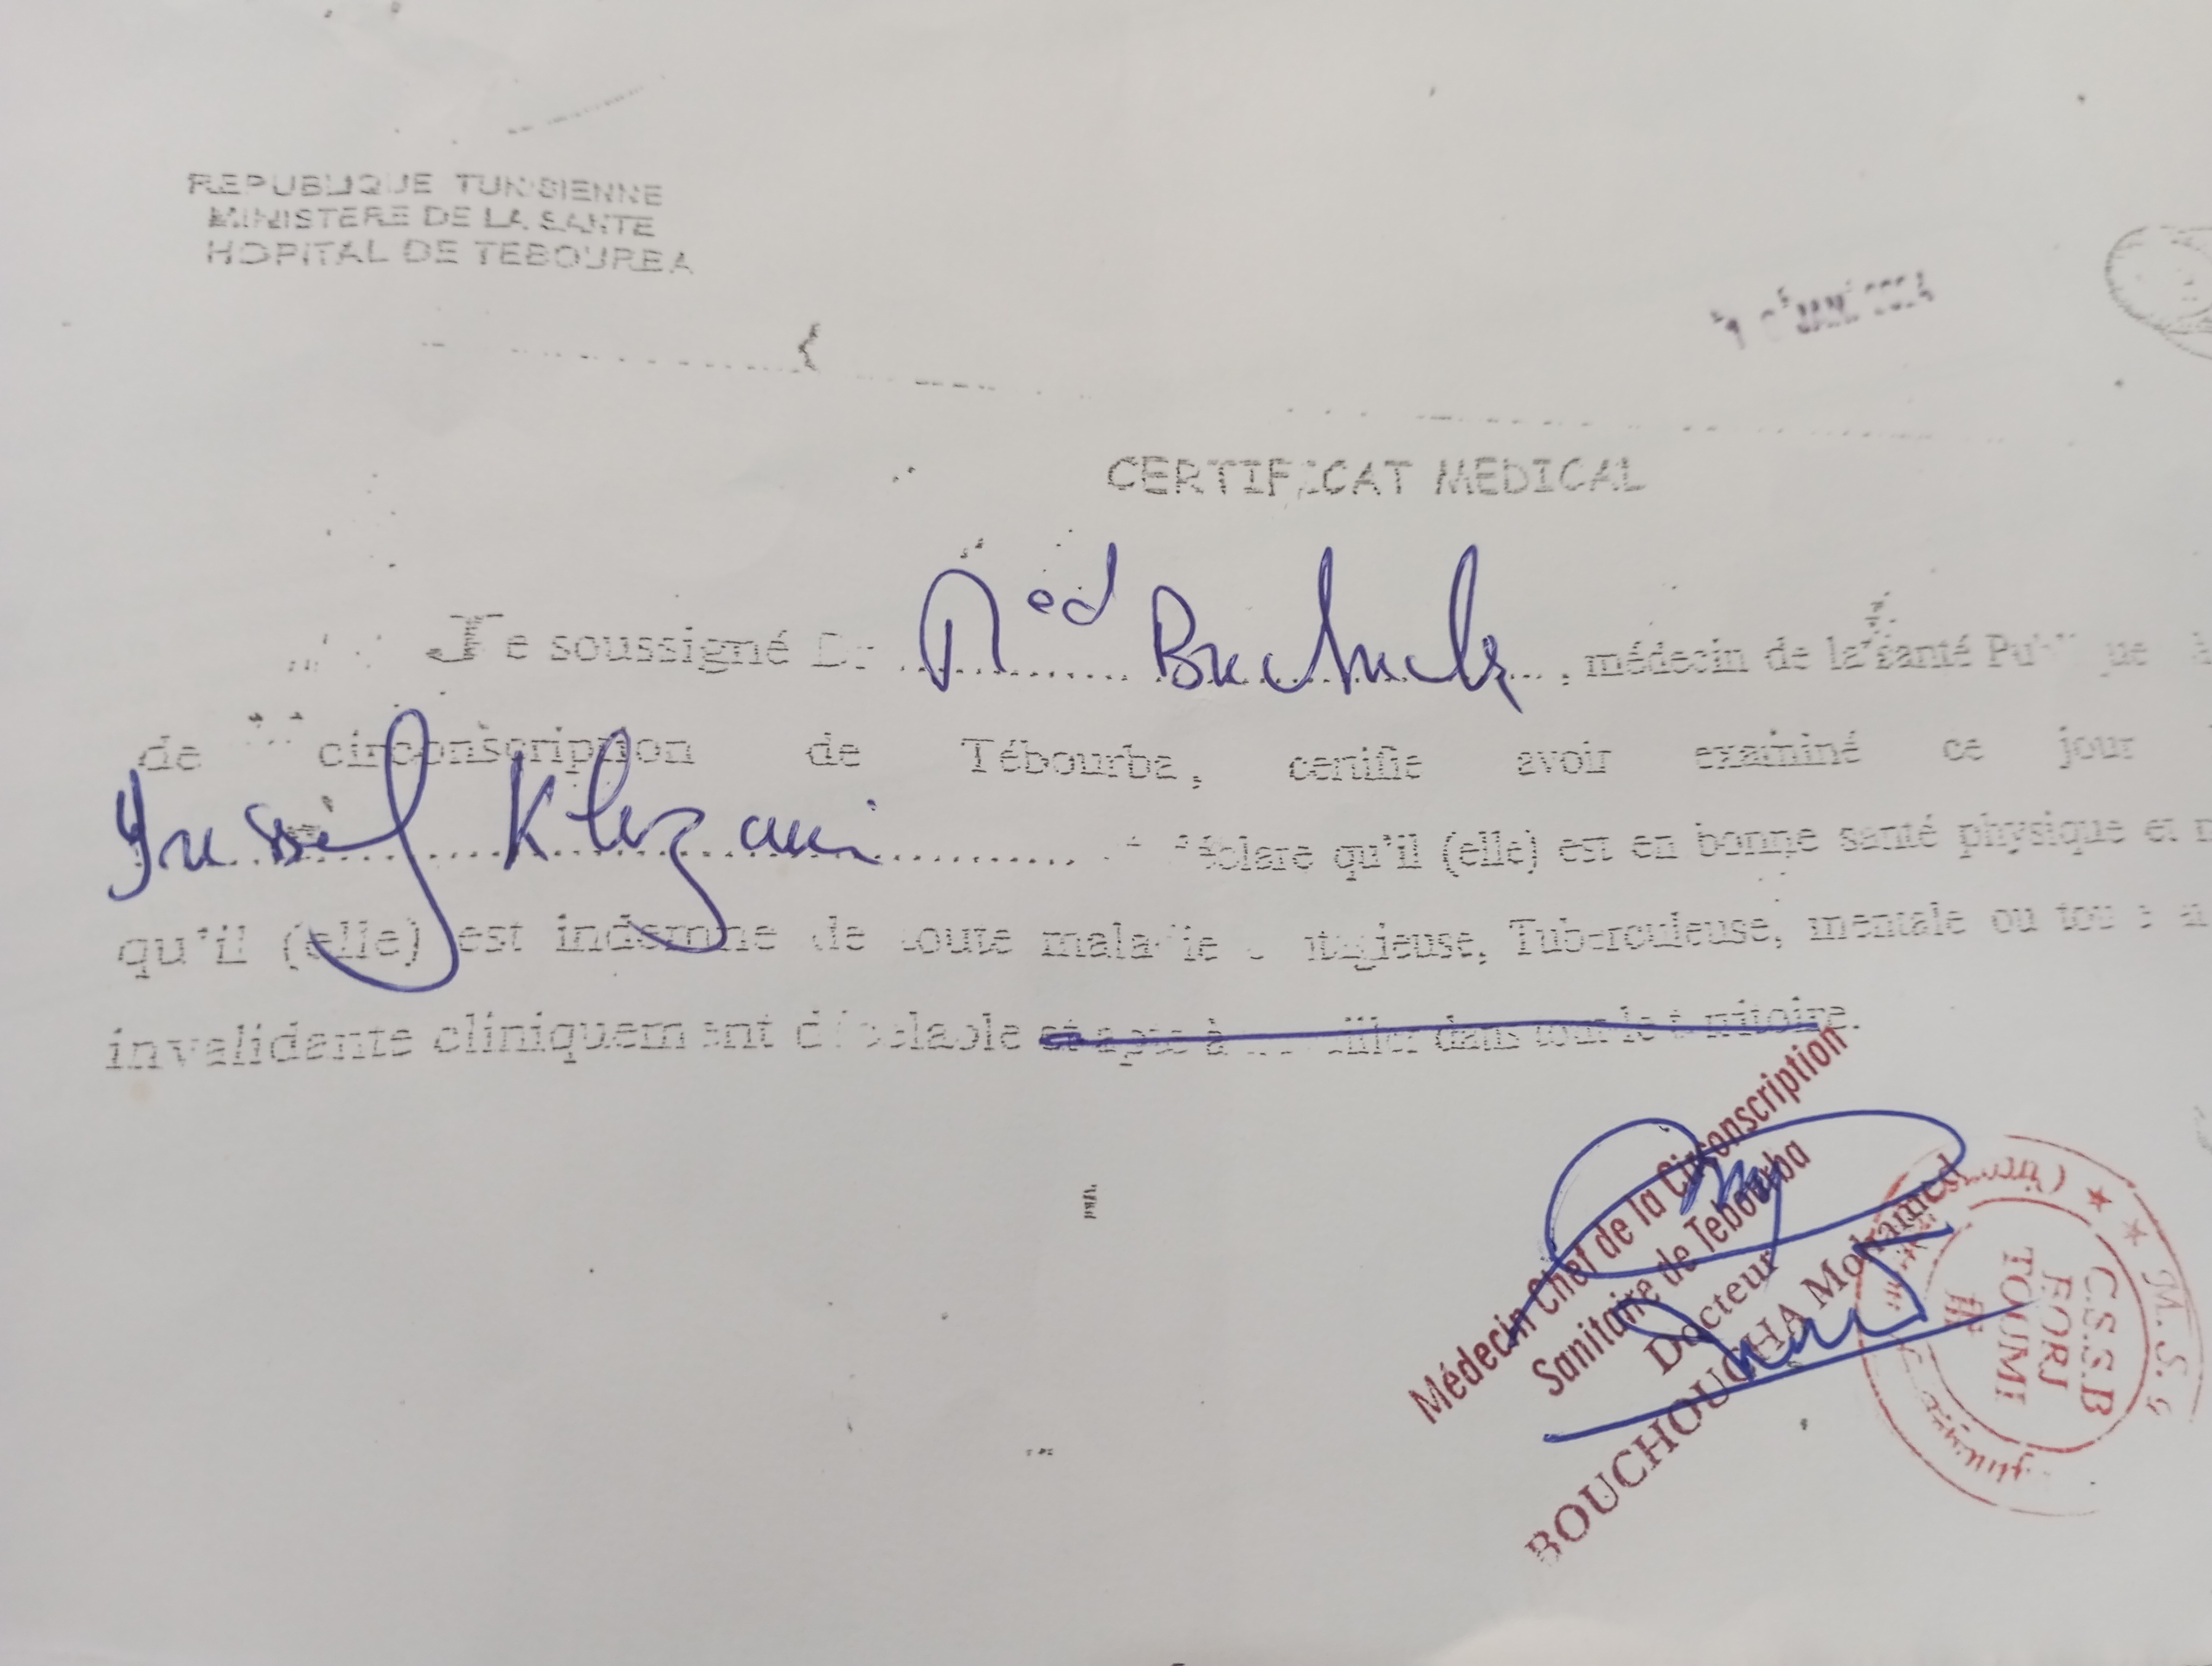 REPUBLIQUE TUNISIENNE
MINISTERE DE LA SANTE
HOPITAL DE TEBOURBA
JAN
CERTIFICAT MEDICAL
Je soussigné Dr Med Bouchoucha, médecin de la santé Publique
de circonscription de Tébourba, certifie avoir examiné ce jour
Youssef déclare qu'il (elle) est en bonne santé physique et
qu'il (elle) est indemne de toute maladie contagieuse, Tuberculeuse, mentale ou
invalidante cliniquement décelable et apte à travailler dans tout le territoire.
Médecin Chef de la Circonscription
Sanitaire de Tebourba
Docteur
BOUCHOUCHA Mohamed
C.S.S.B
BORJ
TOUMI